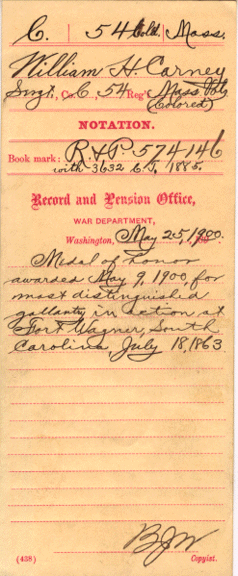 C. | 54 Cold. | Mass.
William H. Carney
Sergt., Co. C, 54 Reg't Mass. Inf.
(Colored)
NOTATION.
Book mark: R & P 574146
with 3632 C.T. 1885.
Record and Pension Office,
WAR DEPARTMENT,
Washington, May 25, 1900.
Medal of Honor
awarded May 9, 1900, for
most distinguished
gallantry in action at
Fort Wagner, South
Carolina, July 18, 1863
BJW
(438) Copyist.